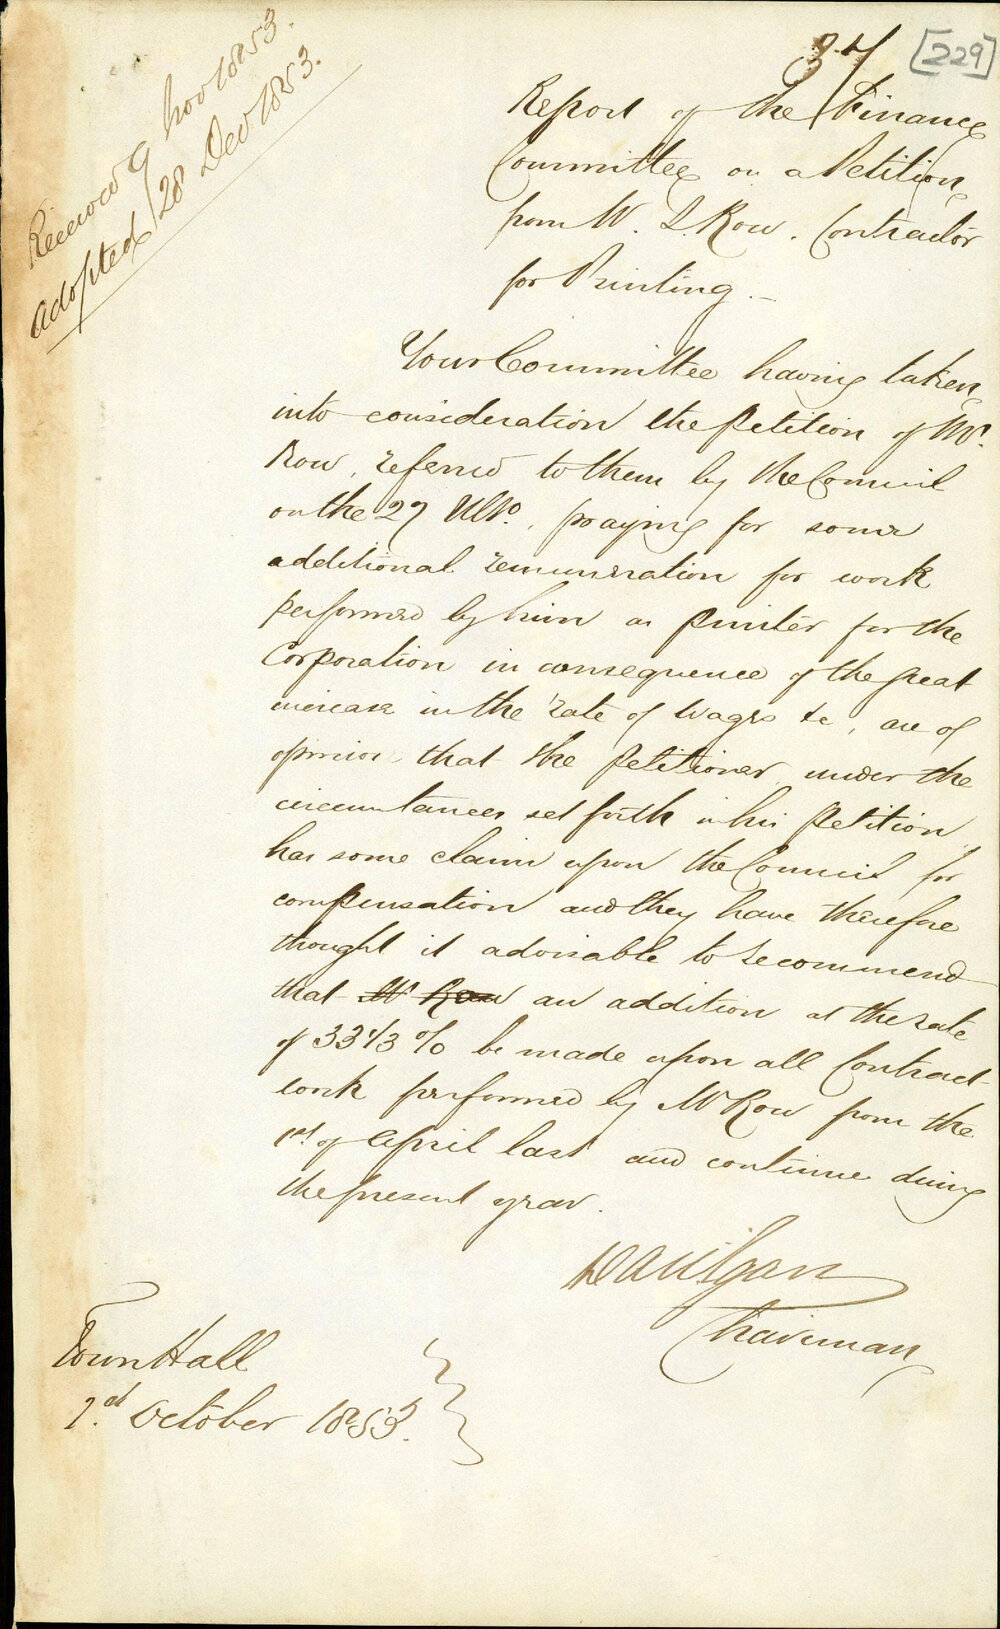 37 [229]
Received 9 Nov 1853.
adopted 28 Dec 1853.
Report of the Finance
Committee on a Petition
from W. L. Row. Contractor
for Printing.
Your Committee having taken
into consideration the Petition of Mr.
Row, referred to them by the Council
on the 27 Ulto., praying for some
additional remuneration for work
performed by him as Printer for the
Corporation in consequence of the great
increase in the rate of Wages &c, are of
opinion that the Petitioner under the
circumstances set forth in his Petition
has some claim upon the Council for
compensation and they have therefore
thought it advisable to recommend
that Mr Row an addition at the rate
of 33 1/3 % be made upon all Contract
work performed by Mr Row from the
1st of April last and continue during
the present year.
Chairman
Town Hall
October 1853.